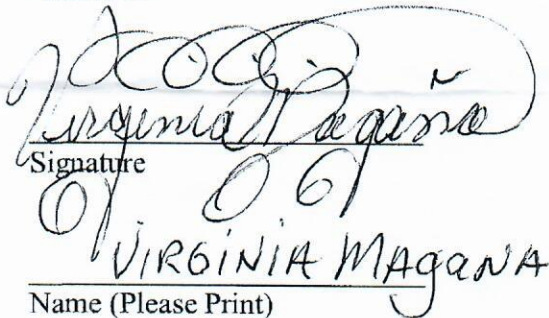 Virginia Magaña
Signature
VIRGINIA MAgaNA
Name (Please Print)